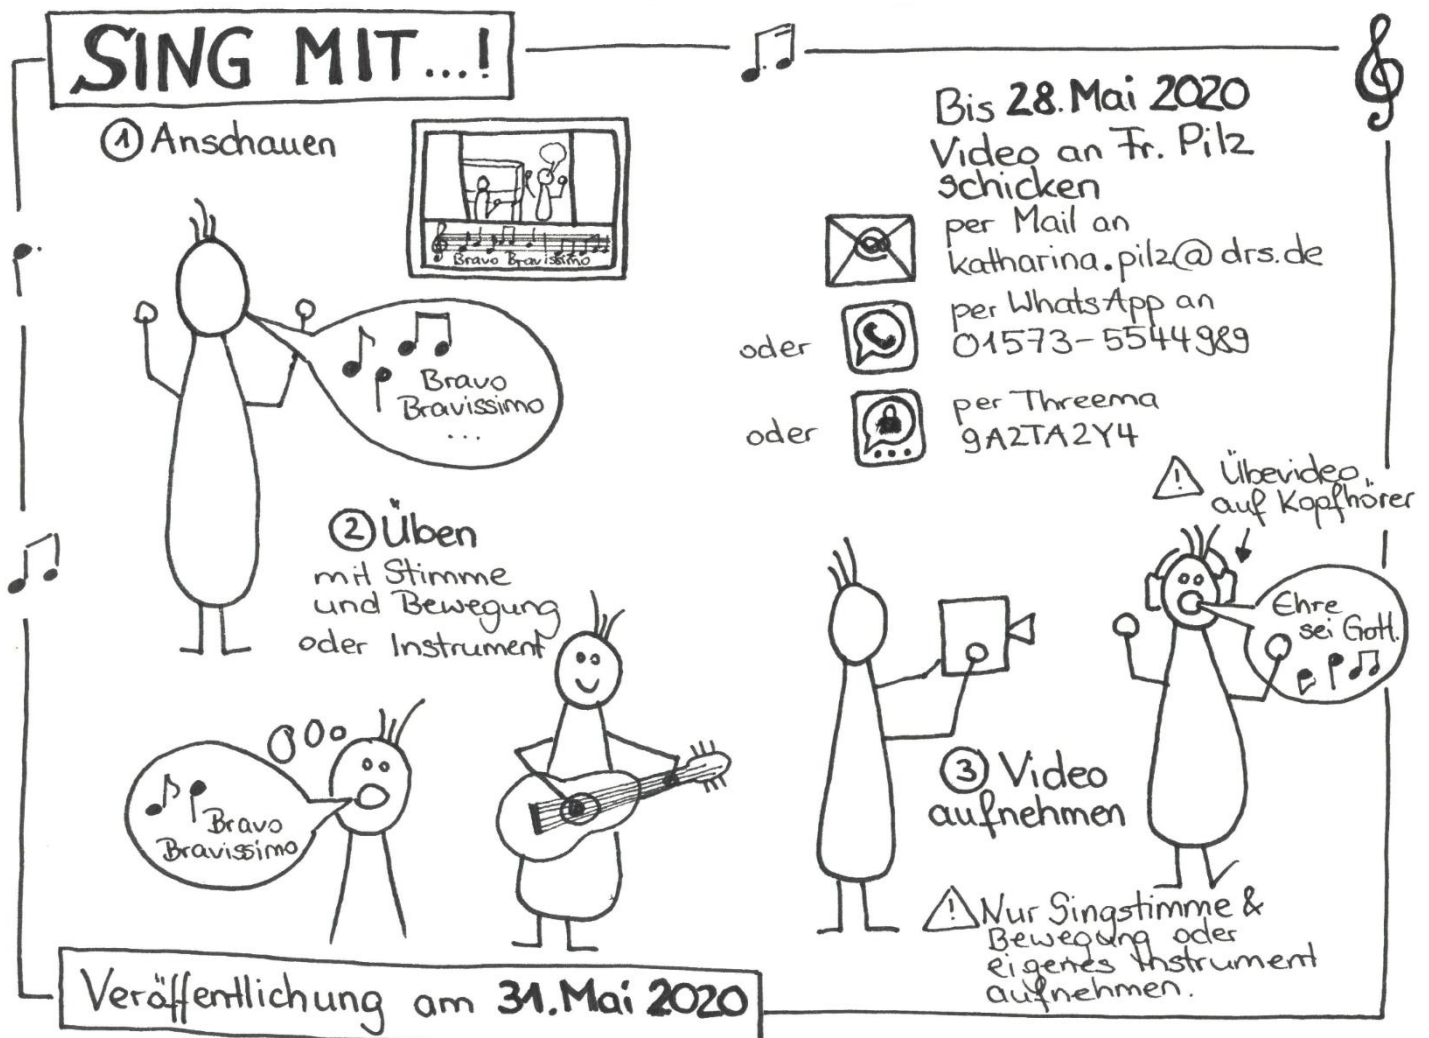 SING MIT...!
① Anschauen
Bravo Bravissimo
Bravo
Bravissimo
...
② Üben
mit Stimme
und Bewegung
oder Instrument
Bravo
Bravissimo
Bis 28. Mai 2020
Video an Fr. Pilz
schicken
per Mail an
katharina.pilz@drs.de
oder
per WhatsApp an
01573-5544989
oder
per Threema
9A2TA2Y4
! Übevideo
auf Kopfhörer
Ehre
sei Gott.
③ Video
aufnehmen
! Nur Singstimme &
Bewegung oder
eigenes Instrument
aufnehmen.
Veröffentlichung am 31. Mai 2020